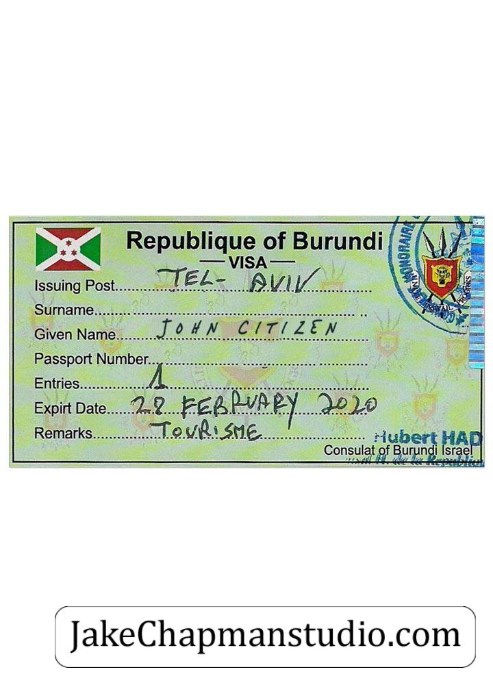 Republique of Burundi
VISA
Issuing Post.....TEL- AVIV
Surname
Given Name JOHN CITIZEN
Passport Number
Entries.....1
Expirt Date.....28 FEBRUARY 2020
Remarks.....TOURISME
Hubert HAD
Consulat of Burundi Israel
de la Republique
HONORAIRE
JakeChapmanstudio.com